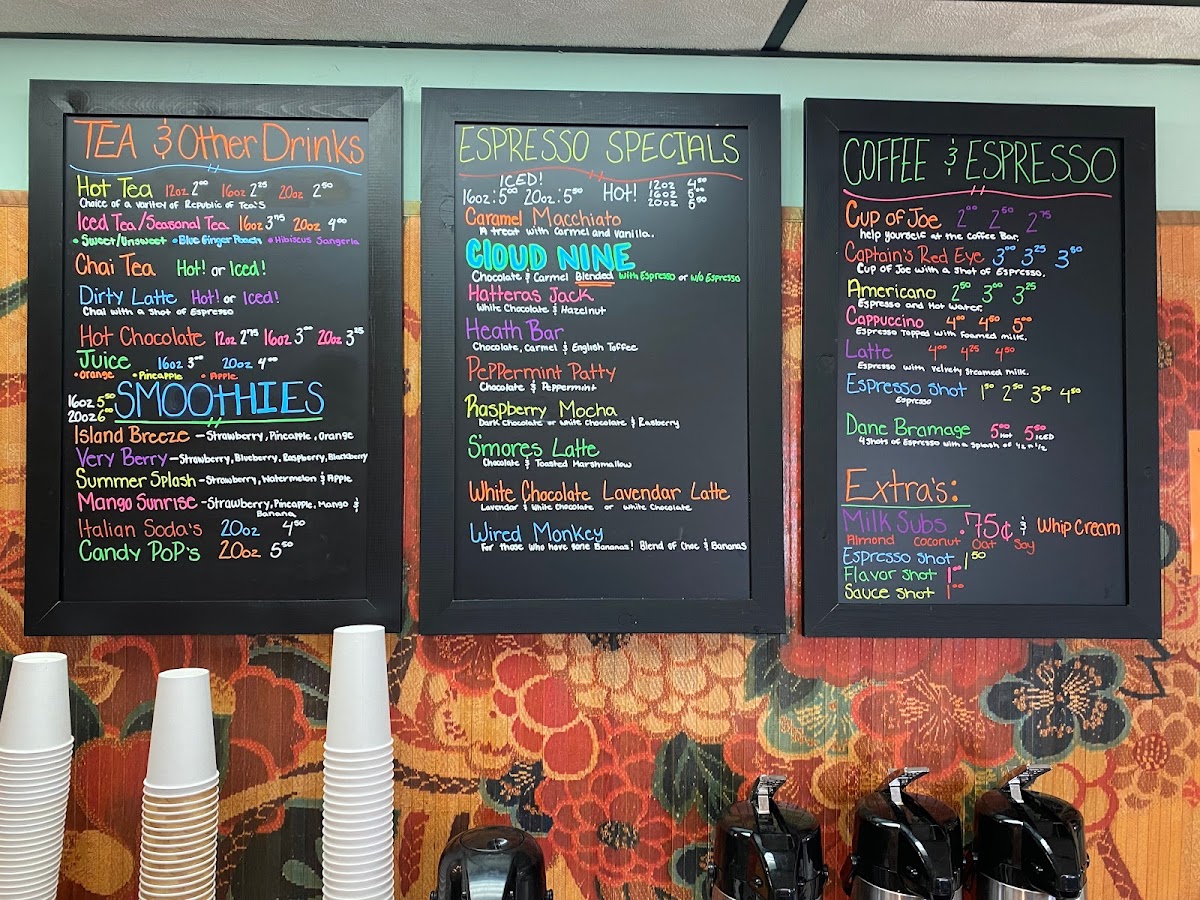 TEA & Other Drinks
Hot Tea 12oz 2⁰⁰ 16oz 2²⁵ 20oz 2⁵⁰
Choice of a varitey of Republic of Tea's
Iced Tea/Seasonal Tea 16oz 3⁷⁵ 20oz 4⁰⁰
• Sweet/Unsweet • Blue Ginger Peach • Hibiscus Sangeria
Chai Tea Hot! or Iced!
Dirty Latte Hot! or Iced!
Chai with a Shot of Espresso
Hot Chocolate 12oz 2⁷⁵ 16oz 3⁰⁰ 20oz 3²⁵
Juice 16oz 3⁰⁰ 20oz 4⁰⁰
• Orange • Pineapple • Apple
16oz 5⁵⁰ SMOOTHIES
20oz 6⁰⁰
Island Breeze - Strawberry, Pineapple, Orange
Very Berry - Strawberry, Blueberry, Raspberry, Blackberry
Summer Splash - Strawberry, Watermelon & Apple
Mango Sunrise - Strawberry, Pineapple, Mango &
Banana
Italian Soda's 20oz 4⁵⁰
Candy PoP's 20oz 5⁵⁰
ESPRESSO SPECIALS
ICED!
16oz: 5⁰⁰ 20oz: 5⁵⁰ HOT! 12oz 4⁵⁰
16oz 5⁰⁰
20oz 5⁵⁰
Caramel Macchiato
A treat with Carmel and Vanilla.
CLOUD NINE
Chocolate & Carmel Blended with Espresso or w/o Espresso
Hatteras Jack
White Chocolate & Hazelnut
Heath Bar
Chocolate, Carmel & English Toffee
Peppermint Patty
Chocolate & Peppermint
Raspberry Mocha
Dark Chocolate or White Chocolate & Rasberry
S'mores Latte
Chocolate & Toasted Marshmallow
White Chocolate Lavendar Latte
Lavendar & White Chocolate or White Chocolate
Wired Monkey
For those who have gone Bananas! Blend of Choc & Bananas
COFFEE & ESPRESSO
Cup of Joe 2⁰⁰ 2⁵⁰ 2⁷⁵
help yourself at the Coffee Bar.
Captain's Red Eye 3⁰⁰ 3²⁵ 3⁵⁰
Cup of Joe with a Shot of Espresso.
Americano 2⁵⁰ 3⁰⁰ 3²⁵
Espresso and Hot Water.
Cappuccino 4⁰⁰ 4⁵⁰ 5⁰⁰
Espresso Topped with Foamed milk.
Latte 4⁰⁰ 4²⁵ 4⁵⁰
Espresso with Velvety Steamed milk.
Espresso Shot 1⁵⁰ 2⁵⁰ 3⁵⁰ 4⁵⁰
Espresso
Dane Bramage 5⁵⁰ Hot 5⁵⁰ ICED
4 Shots of Espresso with a Splash of 1/2 n 1/2
Extra's:
Milk Subs .75¢ & Whip Cream
Almond coconut Oat Soy
Espresso shot 1⁵⁰
Flavor shot 1⁰⁰
Sauce shot 1⁰⁰